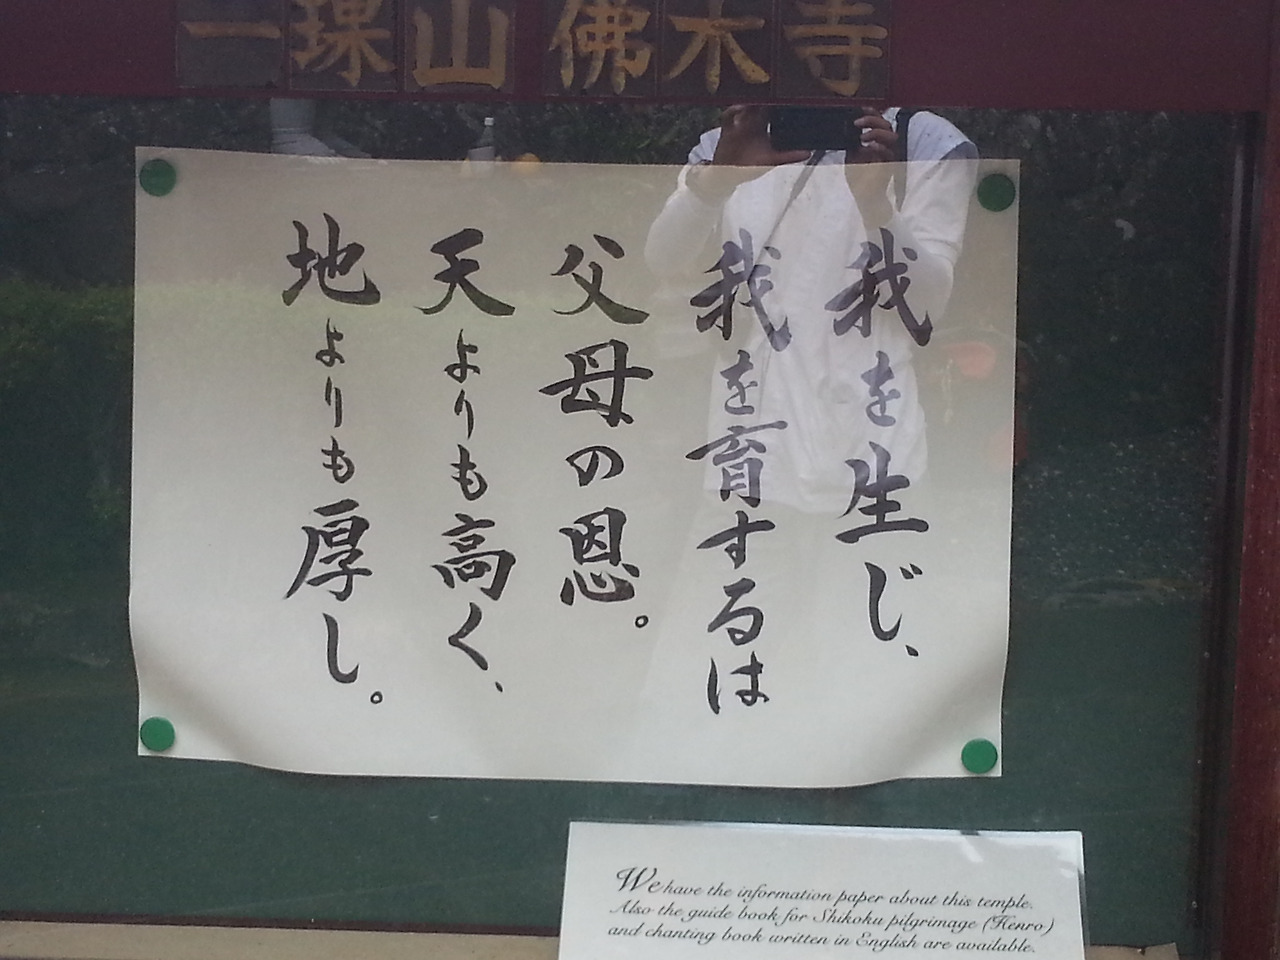 一璟山 佛木寺
我を生じ、
我を育するは
父母の恩。
天よりも高く、
地よりも厚し。
We have the information paper about this temple.
Also the guide book for Shikoku pilgrimage (Henro)
and chanting book written in English are available.